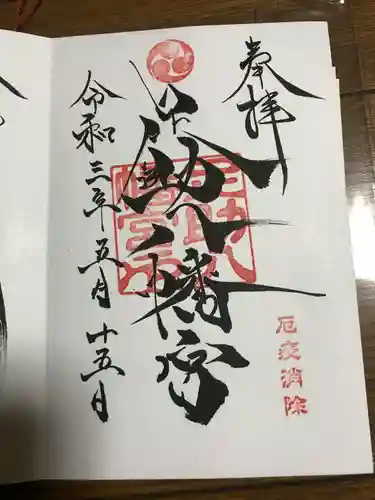 奉拝
助八幡宮
令和三年五月十五日
厄疫消除